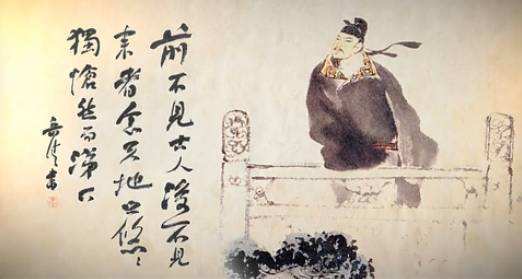 前不見古人後不見
来者念天地之悠々
獨愴然而涕下
書